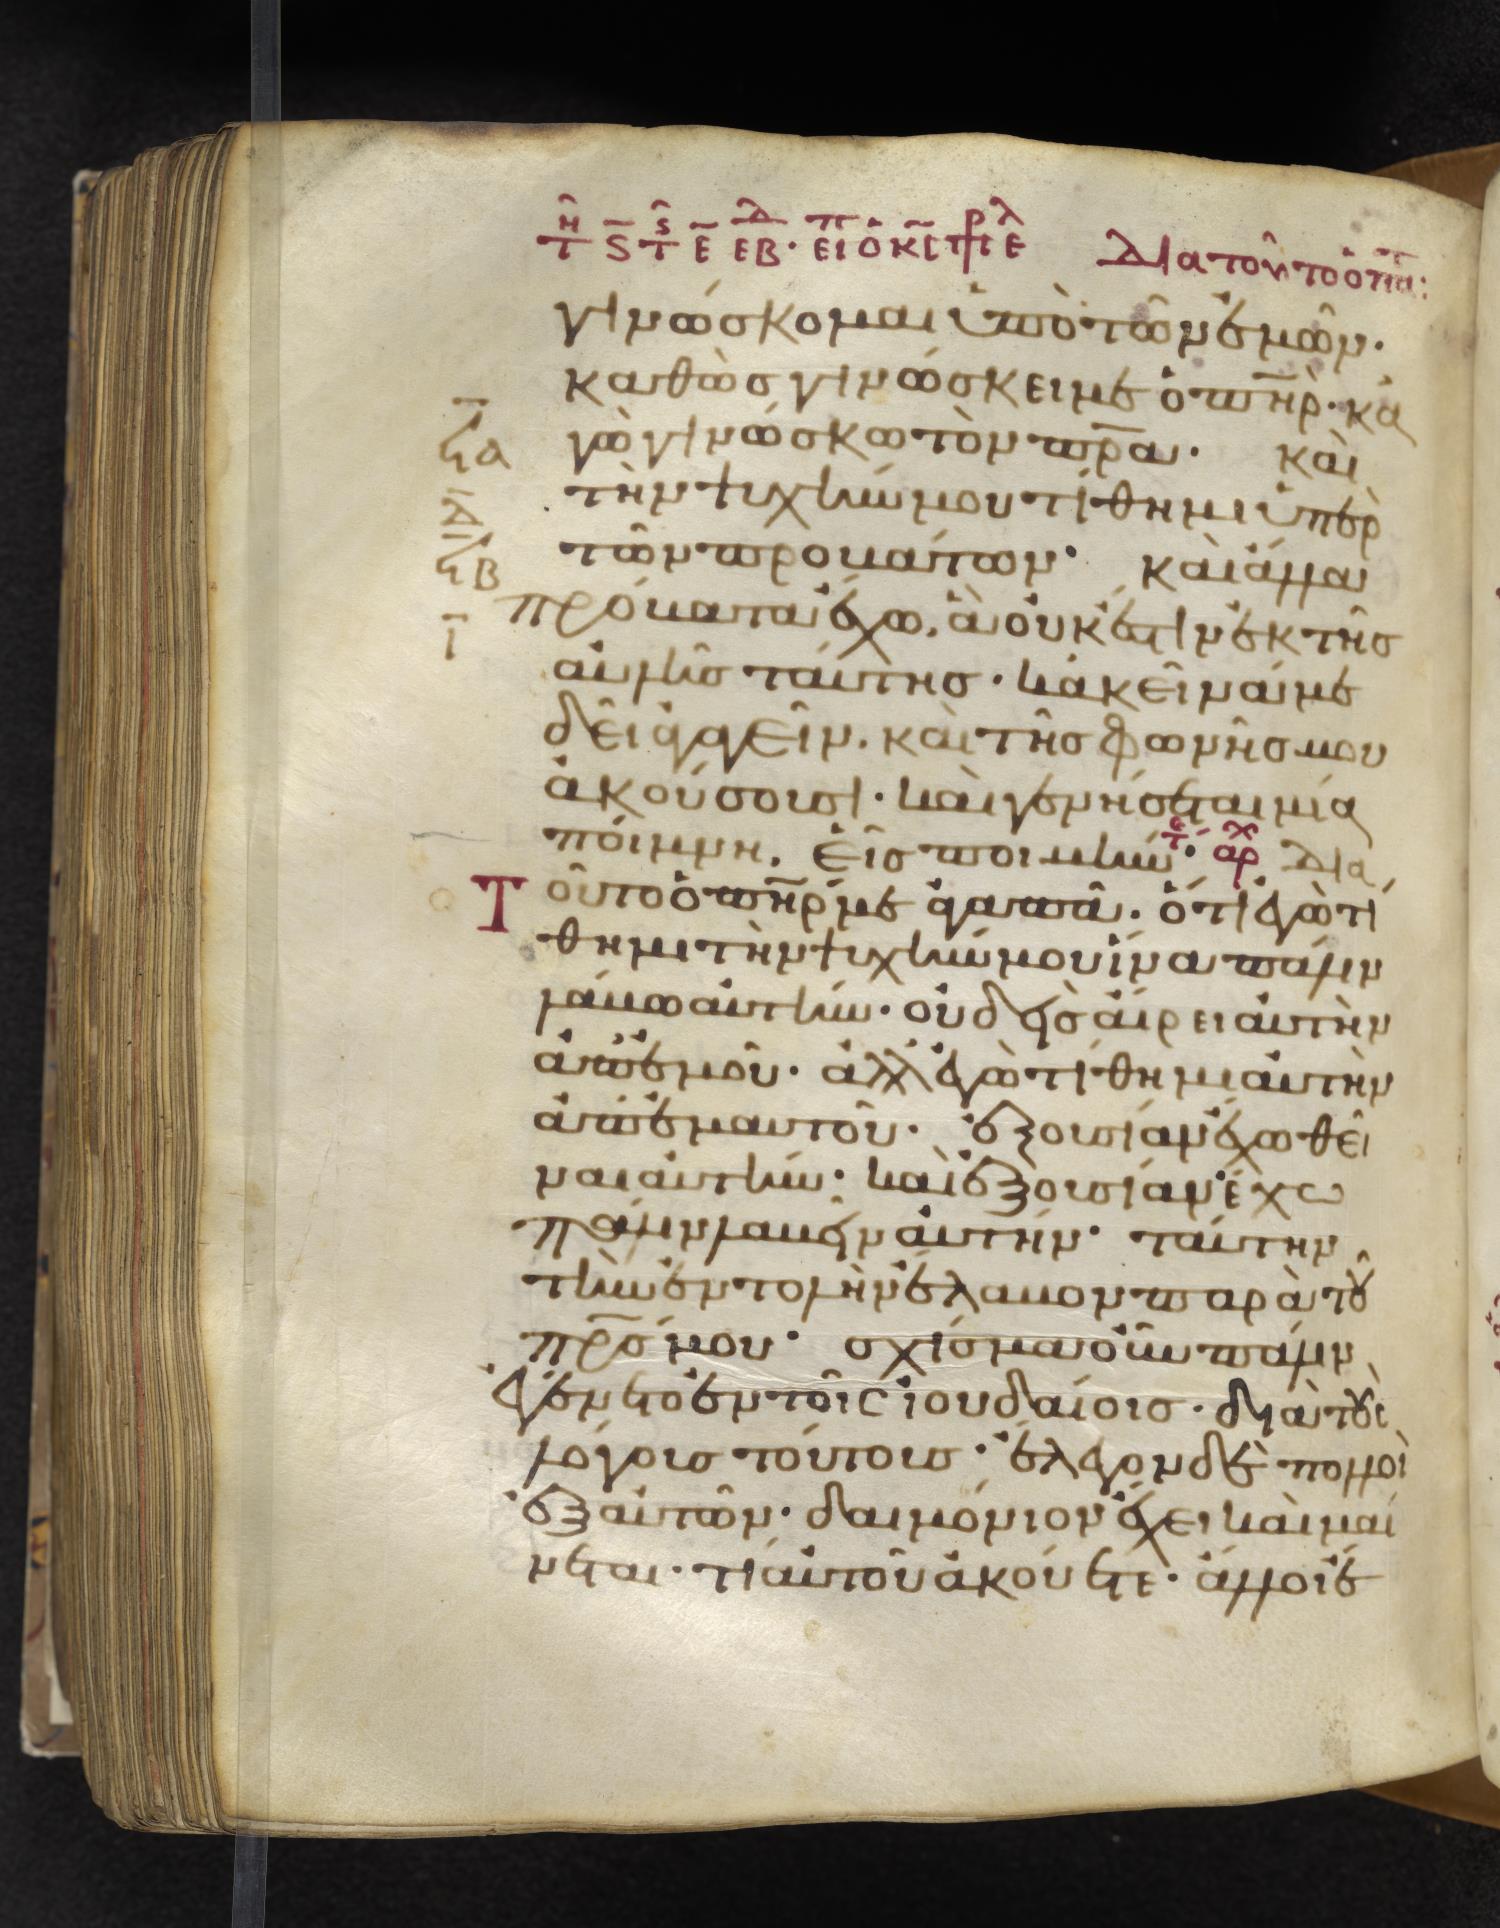 Διὰ τοῦτο ὁ π̅
γινώσκομαι ὑπὸ τῶν ἐμῶν·
καθὼς γινώσκει με ὁ π̅η̅ρ̅· κἀ
γὼ γινώσκω τὸν π̅ρ̅α̅· καὶ
τὴν ψυχὴν μου τίθημι ὑπὲρ
τῶν προβάτων· καὶ ἄλλα
πρόβατα ἔχω, ἃ οὐκ ἔστιν ἐκ τῆς
αὐλῆς ταύτης· κἀκεῖνά με
δεῖ ἀγαγεῖν. καὶ τῆς φωνῆς μου
ἀκούσουσι· καὶ γενήσεται μία
ποίμνη, εἷς ποιμήν· ἀρχ Διὰ
Τ οῦτο ὁ π̅η̅ρ̅ με ἀγαπᾶ· ὅτι ἐγὼ τί
θημι τὴν ψυχὴν μου ἵνα πάλιν
λάβω αὐτήν· οὐδεὶς αἴρει αὐτὴν
ἀπ' ἐμοῦ· ἀλλ' ἐγὼ τίθημι αὐτὴν
ἀπ' ἐμαυτοῦ· ἐξουσίαν ἔχω θεῖ
ναι αὐτήν· καὶ ἐξουσίαν ἔχω
πάλιν λαβεῖν αὐτήν· ταύτην
τὴν ἐντολὴν ἔλαβον παρὰ τοῦ
π̅ρ̅ς̅ μου· σχίσμα οὖν πάλιν
ἐγένετο ἐν τοῖς ἰουδαίοις· διὰ τοὺς
λόγους τούτους· ἔλεγον δὲ πολλοὶ
ἐξ αὐτῶν· δαιμόνιον ἔχει καὶ μαί
νεται· τί αὐτοῦ ἀκούετε· ἄλλοι ἔ